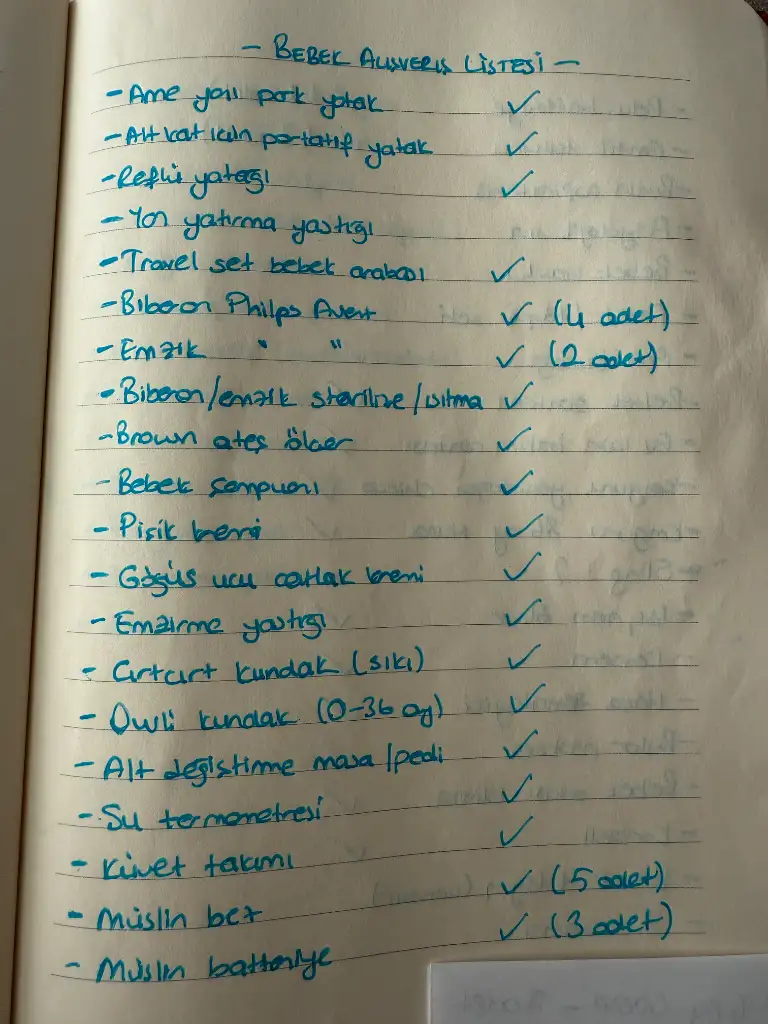 - BEBEK ALIŞVERİŞ LİSTESİ -
- Anne yanı park yatak ✓
- Alt kat için portatif yatak ✓
- Reflü yatağı ✓
- Yan yatırma yastığı
- Travel set bebek arabası ✓
- Biberon Philps Avent ✓ (4 adet)
- Emzik " " ✓ (2 adet)
- Biberon/emzik sterilize/ısıtma ✓
- Brown ateş ölçer ✓
- Bebek şampuanı ✓
- Pişik kremi ✓
- Göğüs ucu çatlak kremi ✓
- Emzirme yastığı ✓
- Cırtcırt kundak (sıkı) ✓
- Owli kundak (0-36 ay) ✓
- Alt değiştirme masa/pedi ✓
- Su termometresi ✓
- Küvet takımı ✓
- Müslin bez ✓ (5 adet)
- Müslin battaniye ✓ (3 adet)